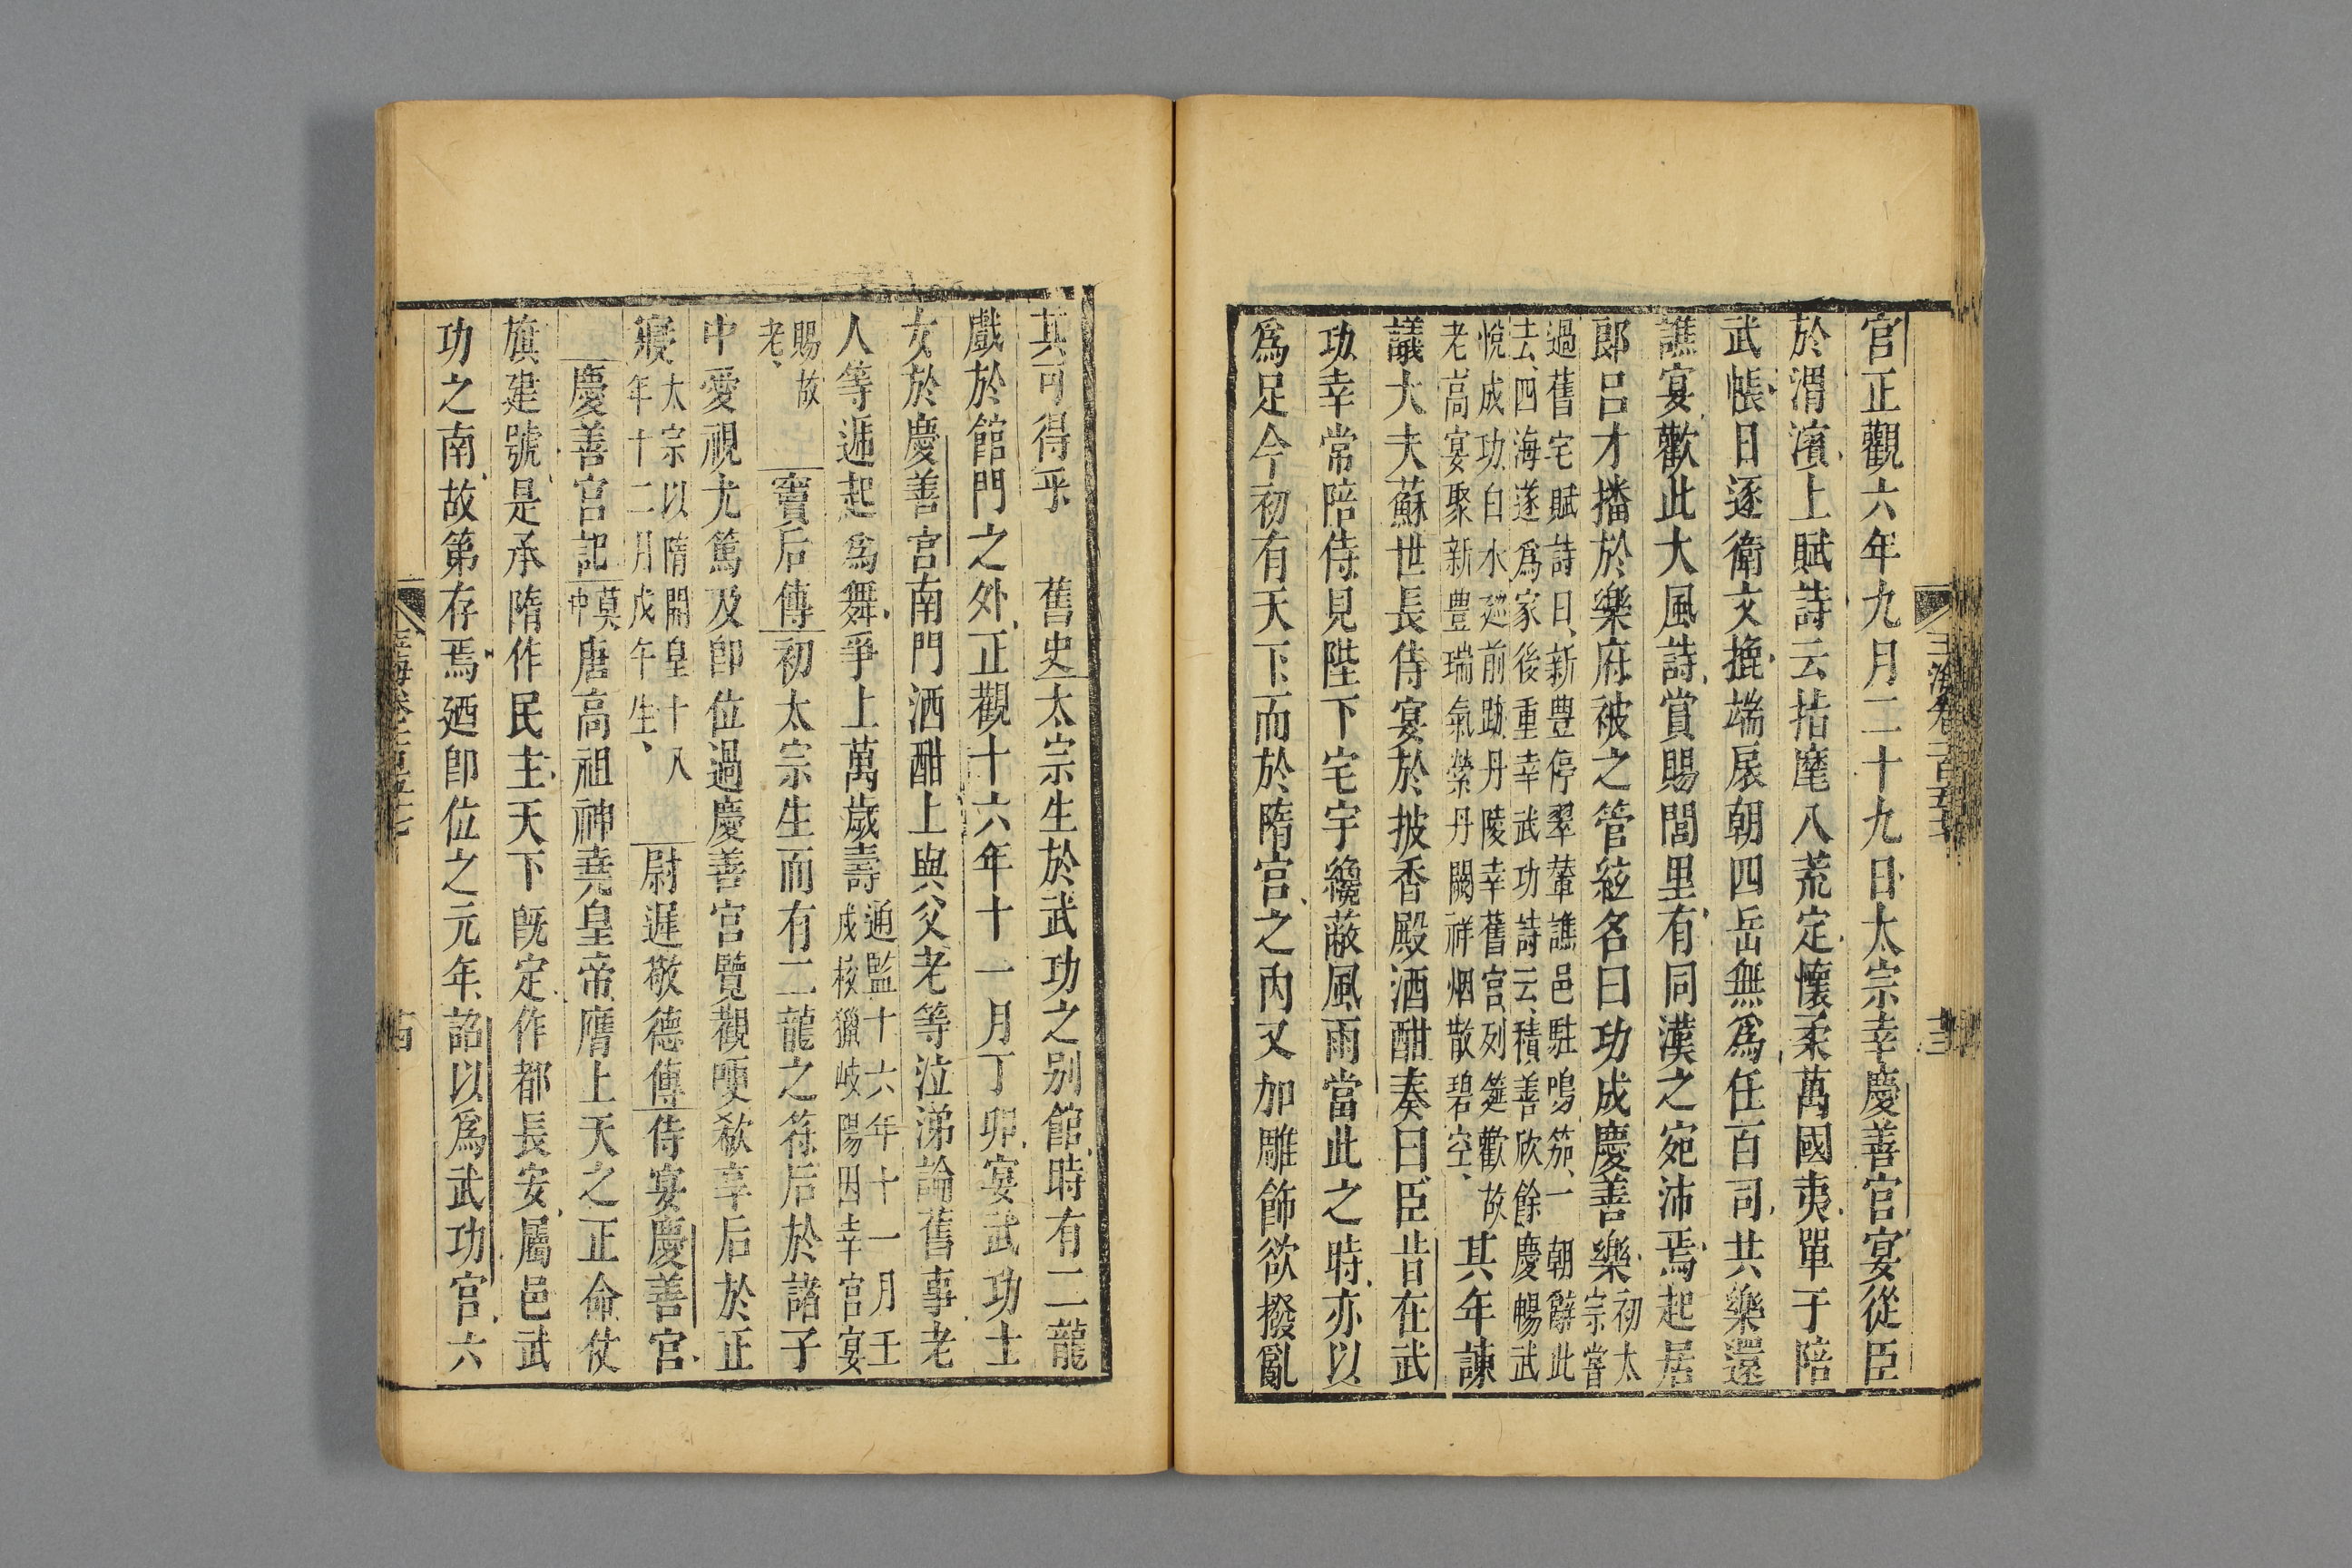 宮正觀六年九月二十九日太宗幸慶善宮宴從臣
於渭濱上賦詩云指麾八荒定懷柔萬國夷單于陪
武帳日逐衛文㮰端扆朝四岳無為任百司共樂還
譙宴歡此大風詩賞賜閭里有同漢之宛沛焉起居
郎呂才播於樂府被之管絃名曰功成慶善樂初太
宗嘗
過舊宅賦詩曰新豐停翠輦譙邑駐鳴笳一朝辭此
去四海遂為家後重幸武功詩云積善欣餘慶暢武
悅成功白水巡前跡丹陵幸舊宮列筵歡故
老高宴聚新豐瑞氣縈丹闕祥烟散碧空
其年諫
議大夫蘇世長侍宴於披香殿酒酣奏曰臣昔在武
功幸常陪侍見陛下宅宇纔蔽風雨當此之時亦以
爲足今初有天下而於隋宮之內又加雕飾欲撥亂
其可得乎 舊史太宗生於武功之别館時有二龍
戲於館門之外正觀十六年十一月丁卯宴武功士
女於慶善宮南門酒酣上與父老等泣涕論舊事老
人等遞起爲舞爭上萬歲壽通監十六年十一月壬
戌校獵岐陽因幸宮宴
賜故
老
竇后傳初太宗生而有二龍之符后於諸子
中愛視尤篤及卽位過慶善宮覽觀哽欷享后於正
寢太宗以隋開皇十八
年十二月戊午生
尉遲敬德傳侍宴慶善宮
慶善宮記莫
中唐高祖神堯皇帝膺上天之正命仗
旗建號是承隋作民主天下既定作都長安屬邑武
功之南故第存焉迺卽位之元年詔以爲武功宮六